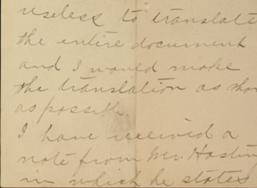 useless to translate
the entire document
and I would make
the translation as shor
as possible
I have received a
note from Mr. Hastin
in which he states